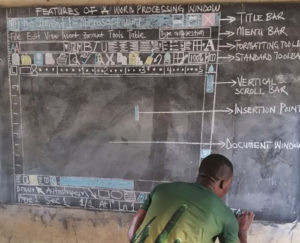 FEATURES OF A WORD PROCESSING WINDOW
TITLE BAR
File Edit View Insert Format Tools Table
MENU BAR
B I U
A
FORMATTING TOOLBAR
100%
STANDARD TOOLBAR
VERTICAL
SCROLL BAR
INSERTION POINT
DOCUMENT WINDOW
Draw
Autoshapes
Page 1 Sec 1 1/1 At Ln 1